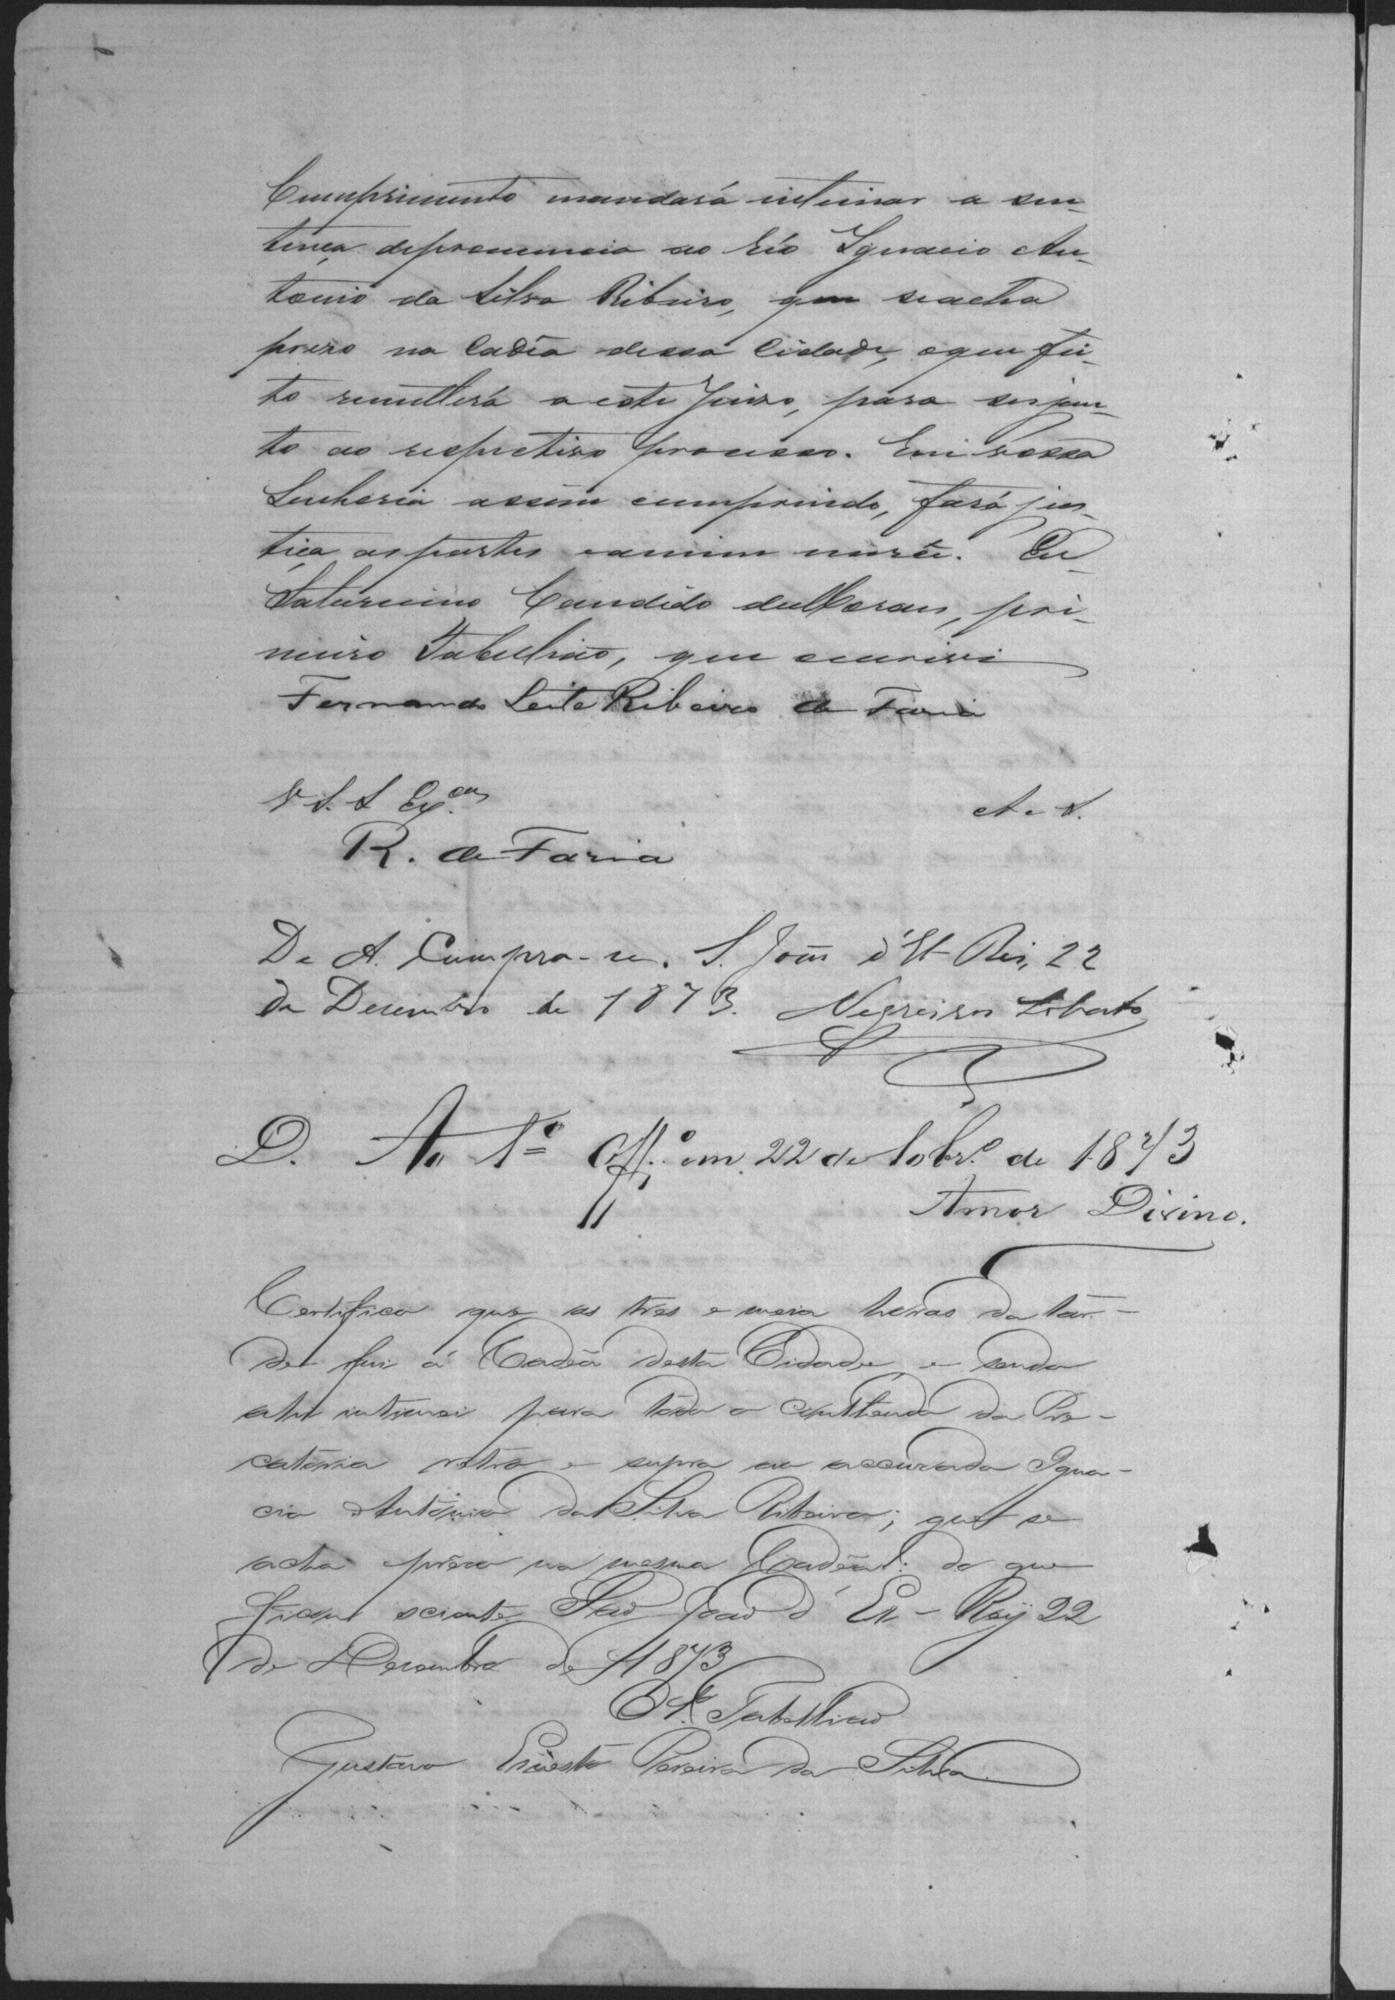 Cumprimento mandará intimar a sen-
tença depronuncia ao Réo Ignacio An-
tonio da Silva Ribeiro, que seacha
prezo na Cadêa dessa Cidade, oque fei-
to remetterá a este Juizo, para ser jun-
to ao respectivo processo. Em vossa
Senhoria assim cumprindo, fará jus-
tiça as partes eamim mercê. Eu
Saturnino Candido de Moraes, pri-
meiro Tabellião, que escrivi
Fernando Leite Ribeiro de Faria
V S. S Ex.
R. de Faria
D e A. Cumpra-se. S. João d'El Rei, 22
de Desembro de 1873. Negreiros Lobato
D. Ao 1º Off.º em 22 de 10br.º de 1873
Amor Divino.
Certifico que as tres e meia horas da tar-
de fui á Cadêa desta Cidade, e sendo
ahi intimei para todo o contheudo da Pre-
catoria retro e supra ao accusado Igna-
cio Antonio da Silva Ribeiro; que se
acha prêso na mesma Cadêa: do que
ficou sciente São João d'El-Rey 22
de Desembro de 1873
O Tabellião
Gustavo Ernesto Pereira da Silva